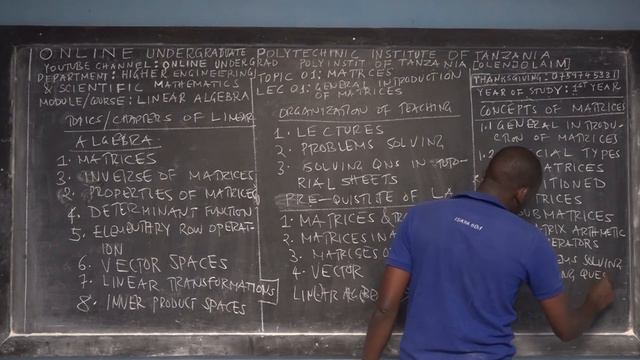 ONLINE UNDERGRADUATE POLYTECHINIC INSTITUTE OF TANZANIA
YOUTUBE CHANNEL: ONLINE UNDERGRAD POLYINSTIT OF TANZANIA [OLENJOLAIM]
DEPARTMENT: HIGHER ENGINEERING
& SCIENTIFIC MATHEMATICS
MODULE/COURSE: LINEAR ALGEBRA
TOPICS/CHAPTERS OF LINEAR
ALGEBRA
1. MATRICES
3. INVERSE OF MATRICES
2. PROPERTIES OF MATRICES
4. DETERMINANT FUNCTION
5. ELEMENTARY ROW OPERAT-
ION
6. VECTOR SPACES
7. LINEAR TRANSFORMATIONS
8. INNER PRODUCT SPACES
TOPIC 01: MATRCES
LEC 01: GENERAL INTRODUCTION
OF MATRICES
ORGANIZATION OF TEACHING
1. LECTURES
2. PROBLEMS SOLVING
3. SOLVING QNS IN TUTO-
RIAL SHEETS
PRE-QUISTITE OF LA
1. MATRICES & TR
2. MATRICES IN A
3. MATRISES O
4. VECTOR
LINEAR ALGEB
THANKSGIVING: 0759745338
YEAR OF STUDY: 1ST YEAR
CONCEPTS OF MATRICES
1.1 GENERAL INTRODU-
CTION OF MATRICES
1.2 CIAL TYPES
ATRICES
ITIONED
TRICES
SUBMATRICES
TRIX ARITHMATIC
ERATORS
EMS SOLVING
NG QUES